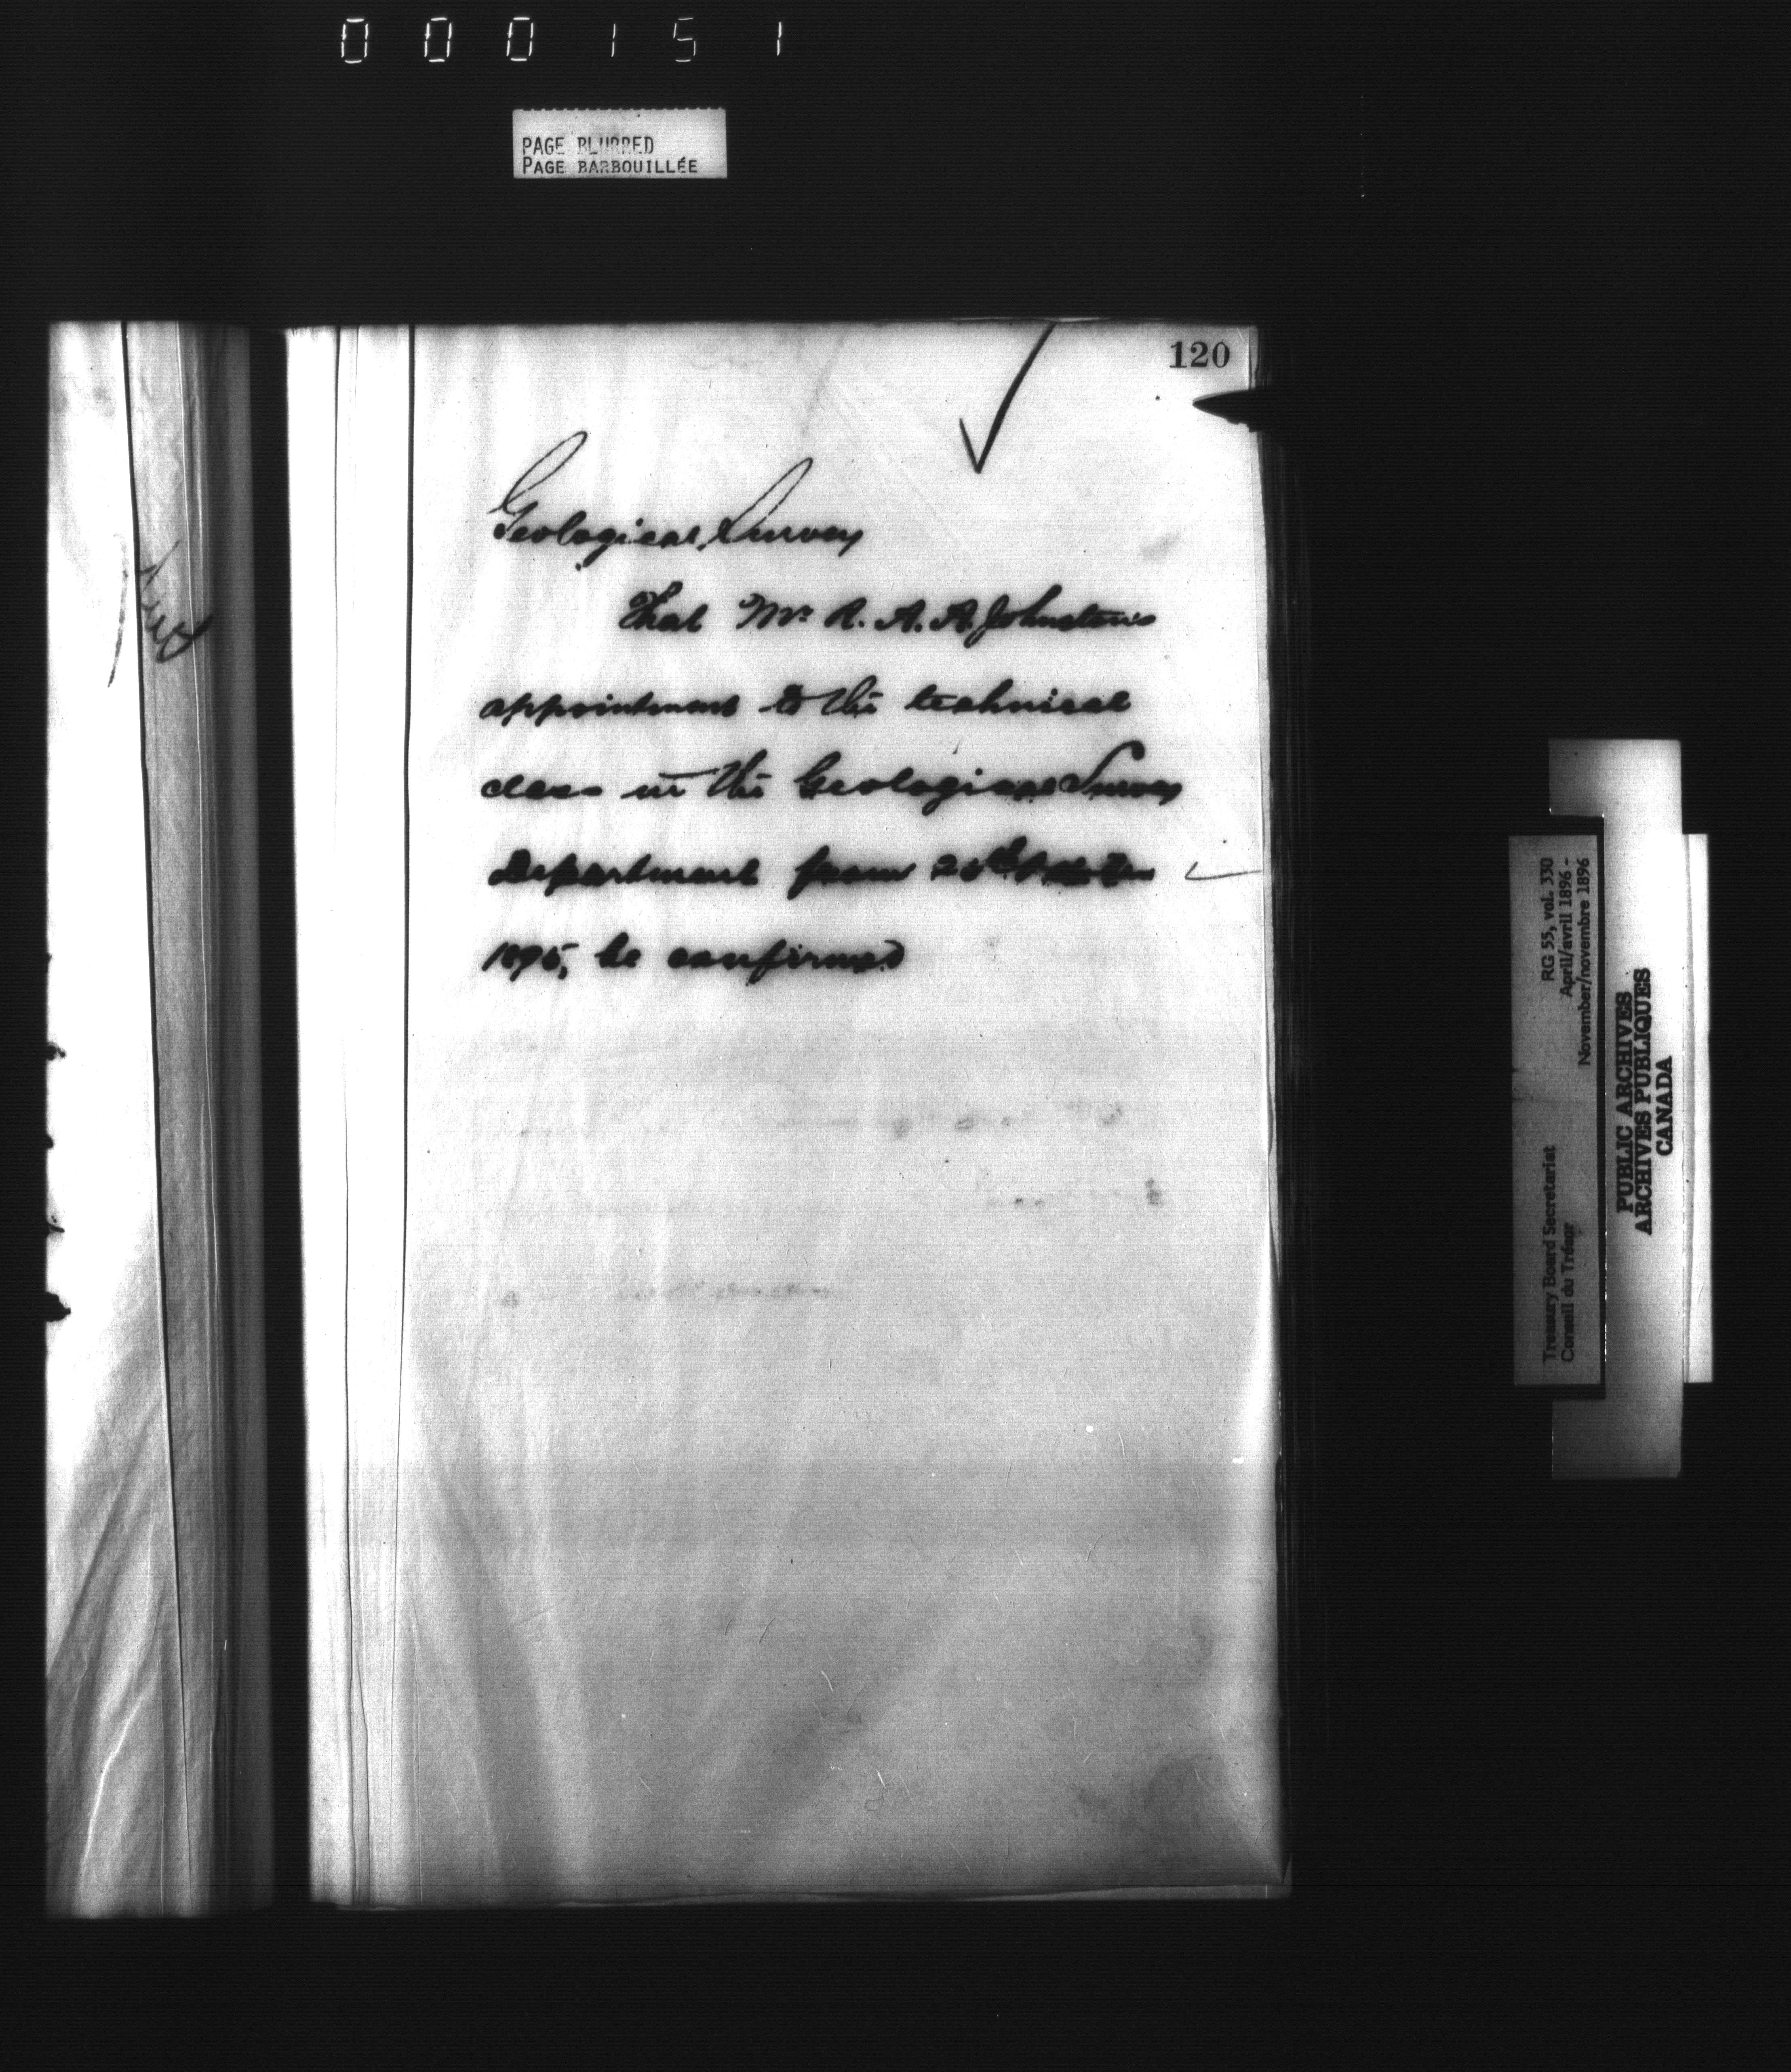 000151
PAGE BLURRED
PAGE BARBOUILLÉE
120
Geological Survey
That Mr R. A. A. Johnston's
appointment to the technical
class in the Geological Survey
Department from
1895, be confirmed
RG 55, vol. 330
April/avril 1896 -
November/novembre 1896
Treasury Board Secretariat
Conseil du Trésor
PUBLIC ARCHIVES
ARCHIVES PUBLIQUES
CANADA